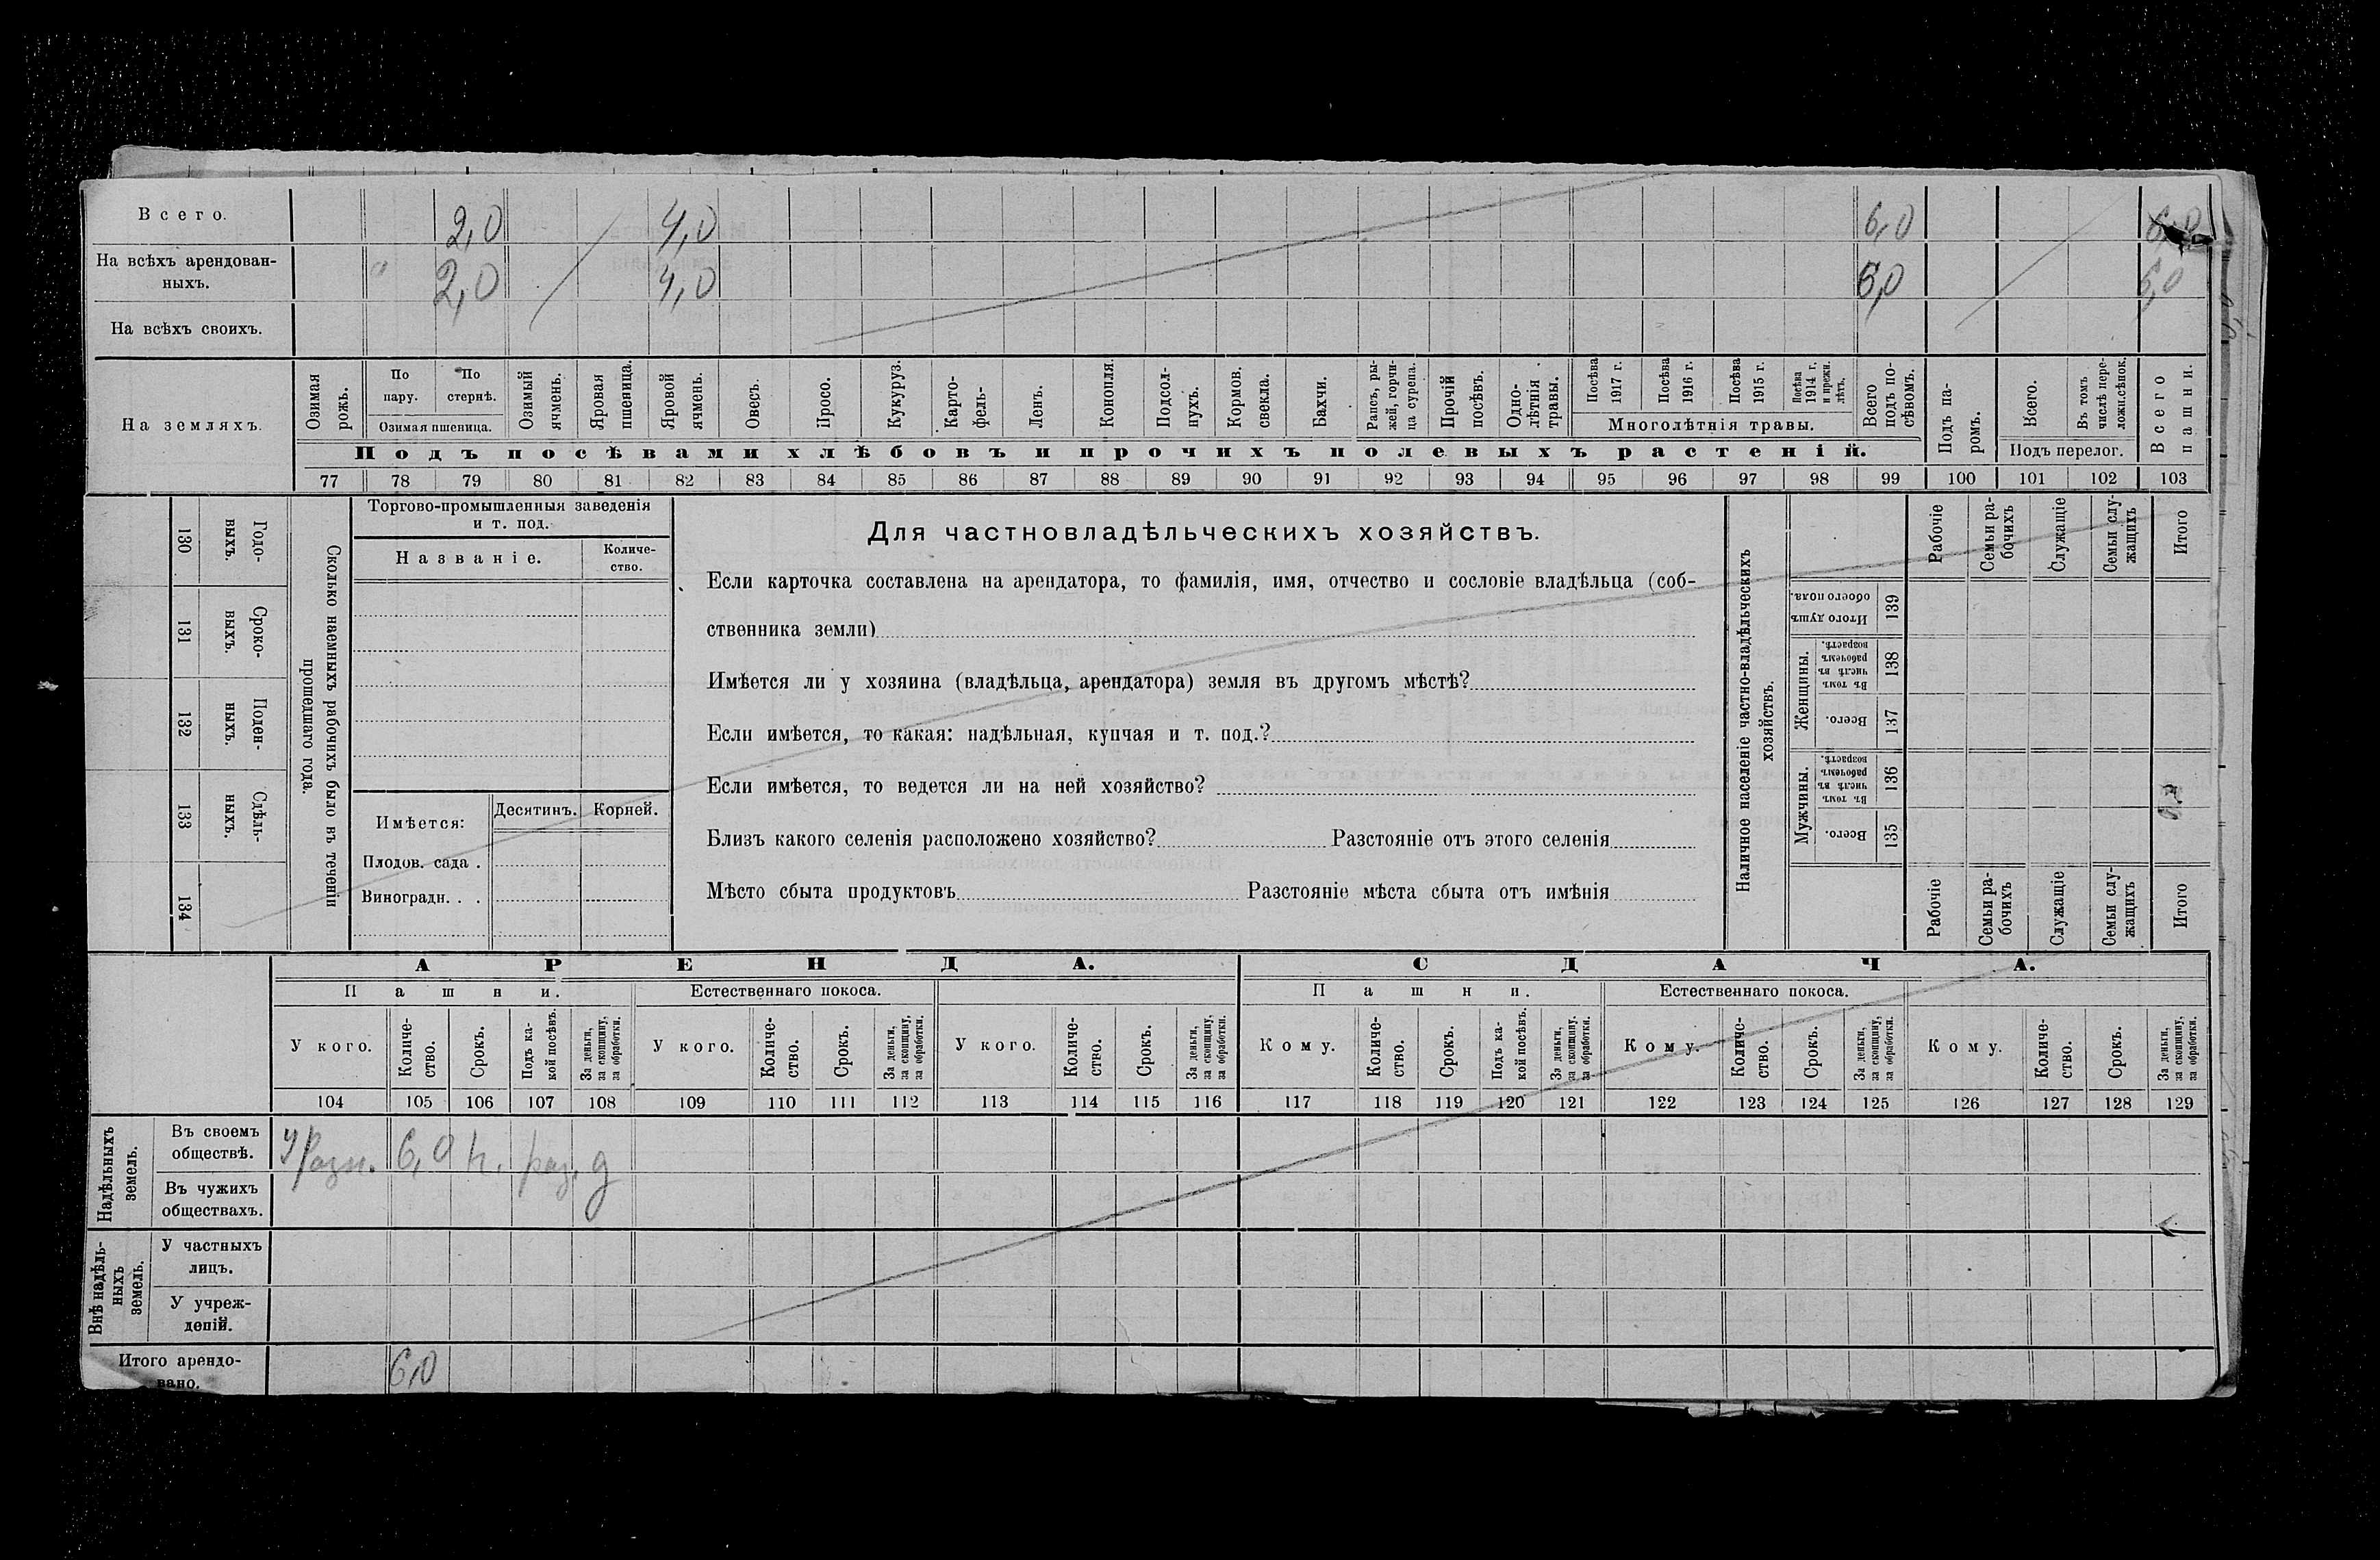 Всего. 2,0 4,0 6,0 6,0
На всѣхъ арендован-
ныхъ. " 2,0 4,0 6,0 6,0
На всѣхъ своихъ.
На земляхъ.
Озимая рожь.
По пару.
По стернѣ.
Озимая пшеница.
Озимый ячмень.
Яровая пшеница.
Яровой ячмень.
Овесъ.
Просо.
Кукуруз.
Карто-
фель-
Ленъ.
Конопля.
Подсол-
нухъ.
Кормов.
свекла.
Бахчи.
Рапсъ, ры-
жей, горчи-
ца сурепа.
Прочій
посѣвъ.
Одно-
лѣтнія
травы.
Посѣва
1917 г.
Посѣва
1916 г.
Посѣва
1915 г.
Посѣва
1914 г.
и прежн.
лѣтъ.
Многолѣтнія травы.
Всего
подъ по-
сѣвомъ.
Подъ па-
ромъ.
Всего.
Въ томъ
числѣ пере-
ложн.сѣнок.
Подъ перелог.
Всего
пашни.
Подъ посѣвами хлѣбовъ и прочихъ полевыхъ растеній.
77 78 79 80 81 82 83 84 85 86 87 88 89 90 91 92 93 94 95 96 97 98 99 100 101 102 103
130 Годо-
выхъ.
131 Сроко-
выхъ.
132 Поден-
ныхъ.
133 Сдѣль-
ныхъ.
134
Сколько наемныхъ рабочихъ было въ теченіи
прошедшаго года.
Торгово-промышленныя заведенія
и т. под.
Названіе.
Количе-
ство.
Имѣется:
Десятинъ. Корней.
Плодов. сада .
Виноградн. . .
Для частновладѣльческихъ хозяйствъ.
Если карточка составлена на арендатора, то фамилія, имя, отчество и сословіе владѣльца (соб-
ственника земли)
Имѣется ли у хозяина (владѣльца, арендатора) земля въ другомъ мѣстѣ?
Если имѣется, то какая: надѣльная, купчая и т. под.?
Если имѣется, то ведется ли на ней хозяйство?
Близъ какого селенія расположено хозяйство? Разстояніе отъ этого селенія
Мѣсто сбыта продуктовъ Разстояніе мѣста сбыта отъ имѣнія
Наличное населеніе частно-владѣльческихъ
хозяйствъ.
Рабочіе
Семьи ра-
бочихъ
Служащіе
Семьи слу-
жащихъ
Итого
Итого душъ
обоего пола.
139
Женщины.
Въ томъ
числѣ въ
рабочемъ
возрастѣ.
138
Всего.
137
Мужчины.
Въ томъ
числѣ въ
рабочемъ
возрастѣ.
136
Всего.
135
Рабочіе
Семьи ра-
бочихъ
Служащіе
Семьи слу-
жащихъ
Итого
АРЕНДА. СДАЧА.
Пашни. Естественнаго покоса. Пашни. Естественнаго покоса.
У кого.
Количе-
ство.
Срокъ.
Подъ ка-
кой посѣвъ.
За деньги,
за скопщину,
за обработки.
У кого.
Количе-
ство.
Срокъ.
За деньги,
за скопщину,
за обработки.
У кого.
Количе-
ство.
Срокъ.
За деньги,
за скопщину,
за обработки.
Кому.
Количе-
ство.
Срокъ.
Подъ ка-
кой посѣвъ.
За деньги,
за скопщину.
за обработки.
Кому.
Количе-
ство.
Срокъ.
За деньги,
за скопщину,
за обработки.
Кому.
Количе-
ство.
Срокъ.
За деньги,
за скопщину,
за обработки.
104 105 106 107 108 109 110 111 112 113 114 115 116 117 118 119 120 121 122 123 124 125 126 127 128 129
Надѣльныхъ
земель.
Въ своемъ
обществѣ. У разн. 6,0 раз. д
Въ чужихъ
обществахъ.
Внѣ надѣль-
ныхъ
земель.
У частныхъ
лицъ.
У учреж-
деній.
Итого арендо-
вано. 6,0